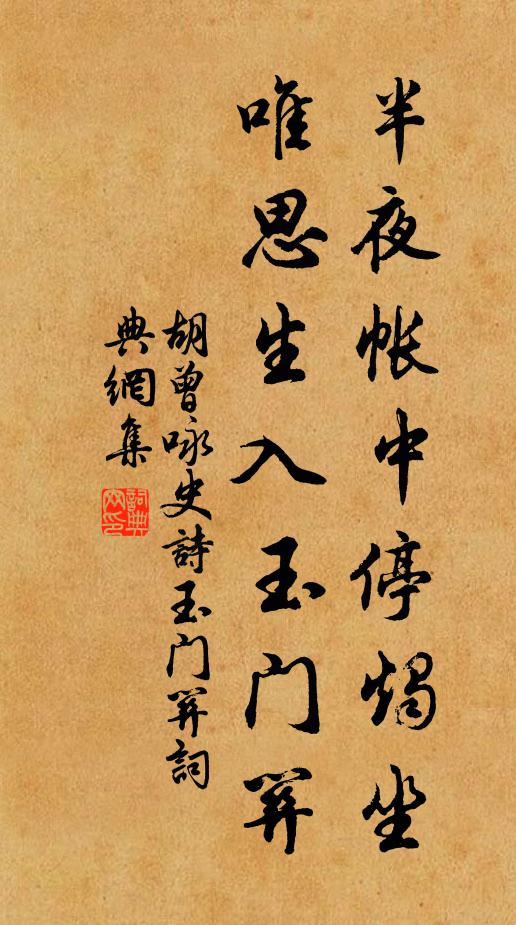 半夜帐中停烛坐
唯思生入玉门关
胡曾咏史诗玉门关词
典網集
詞典網印